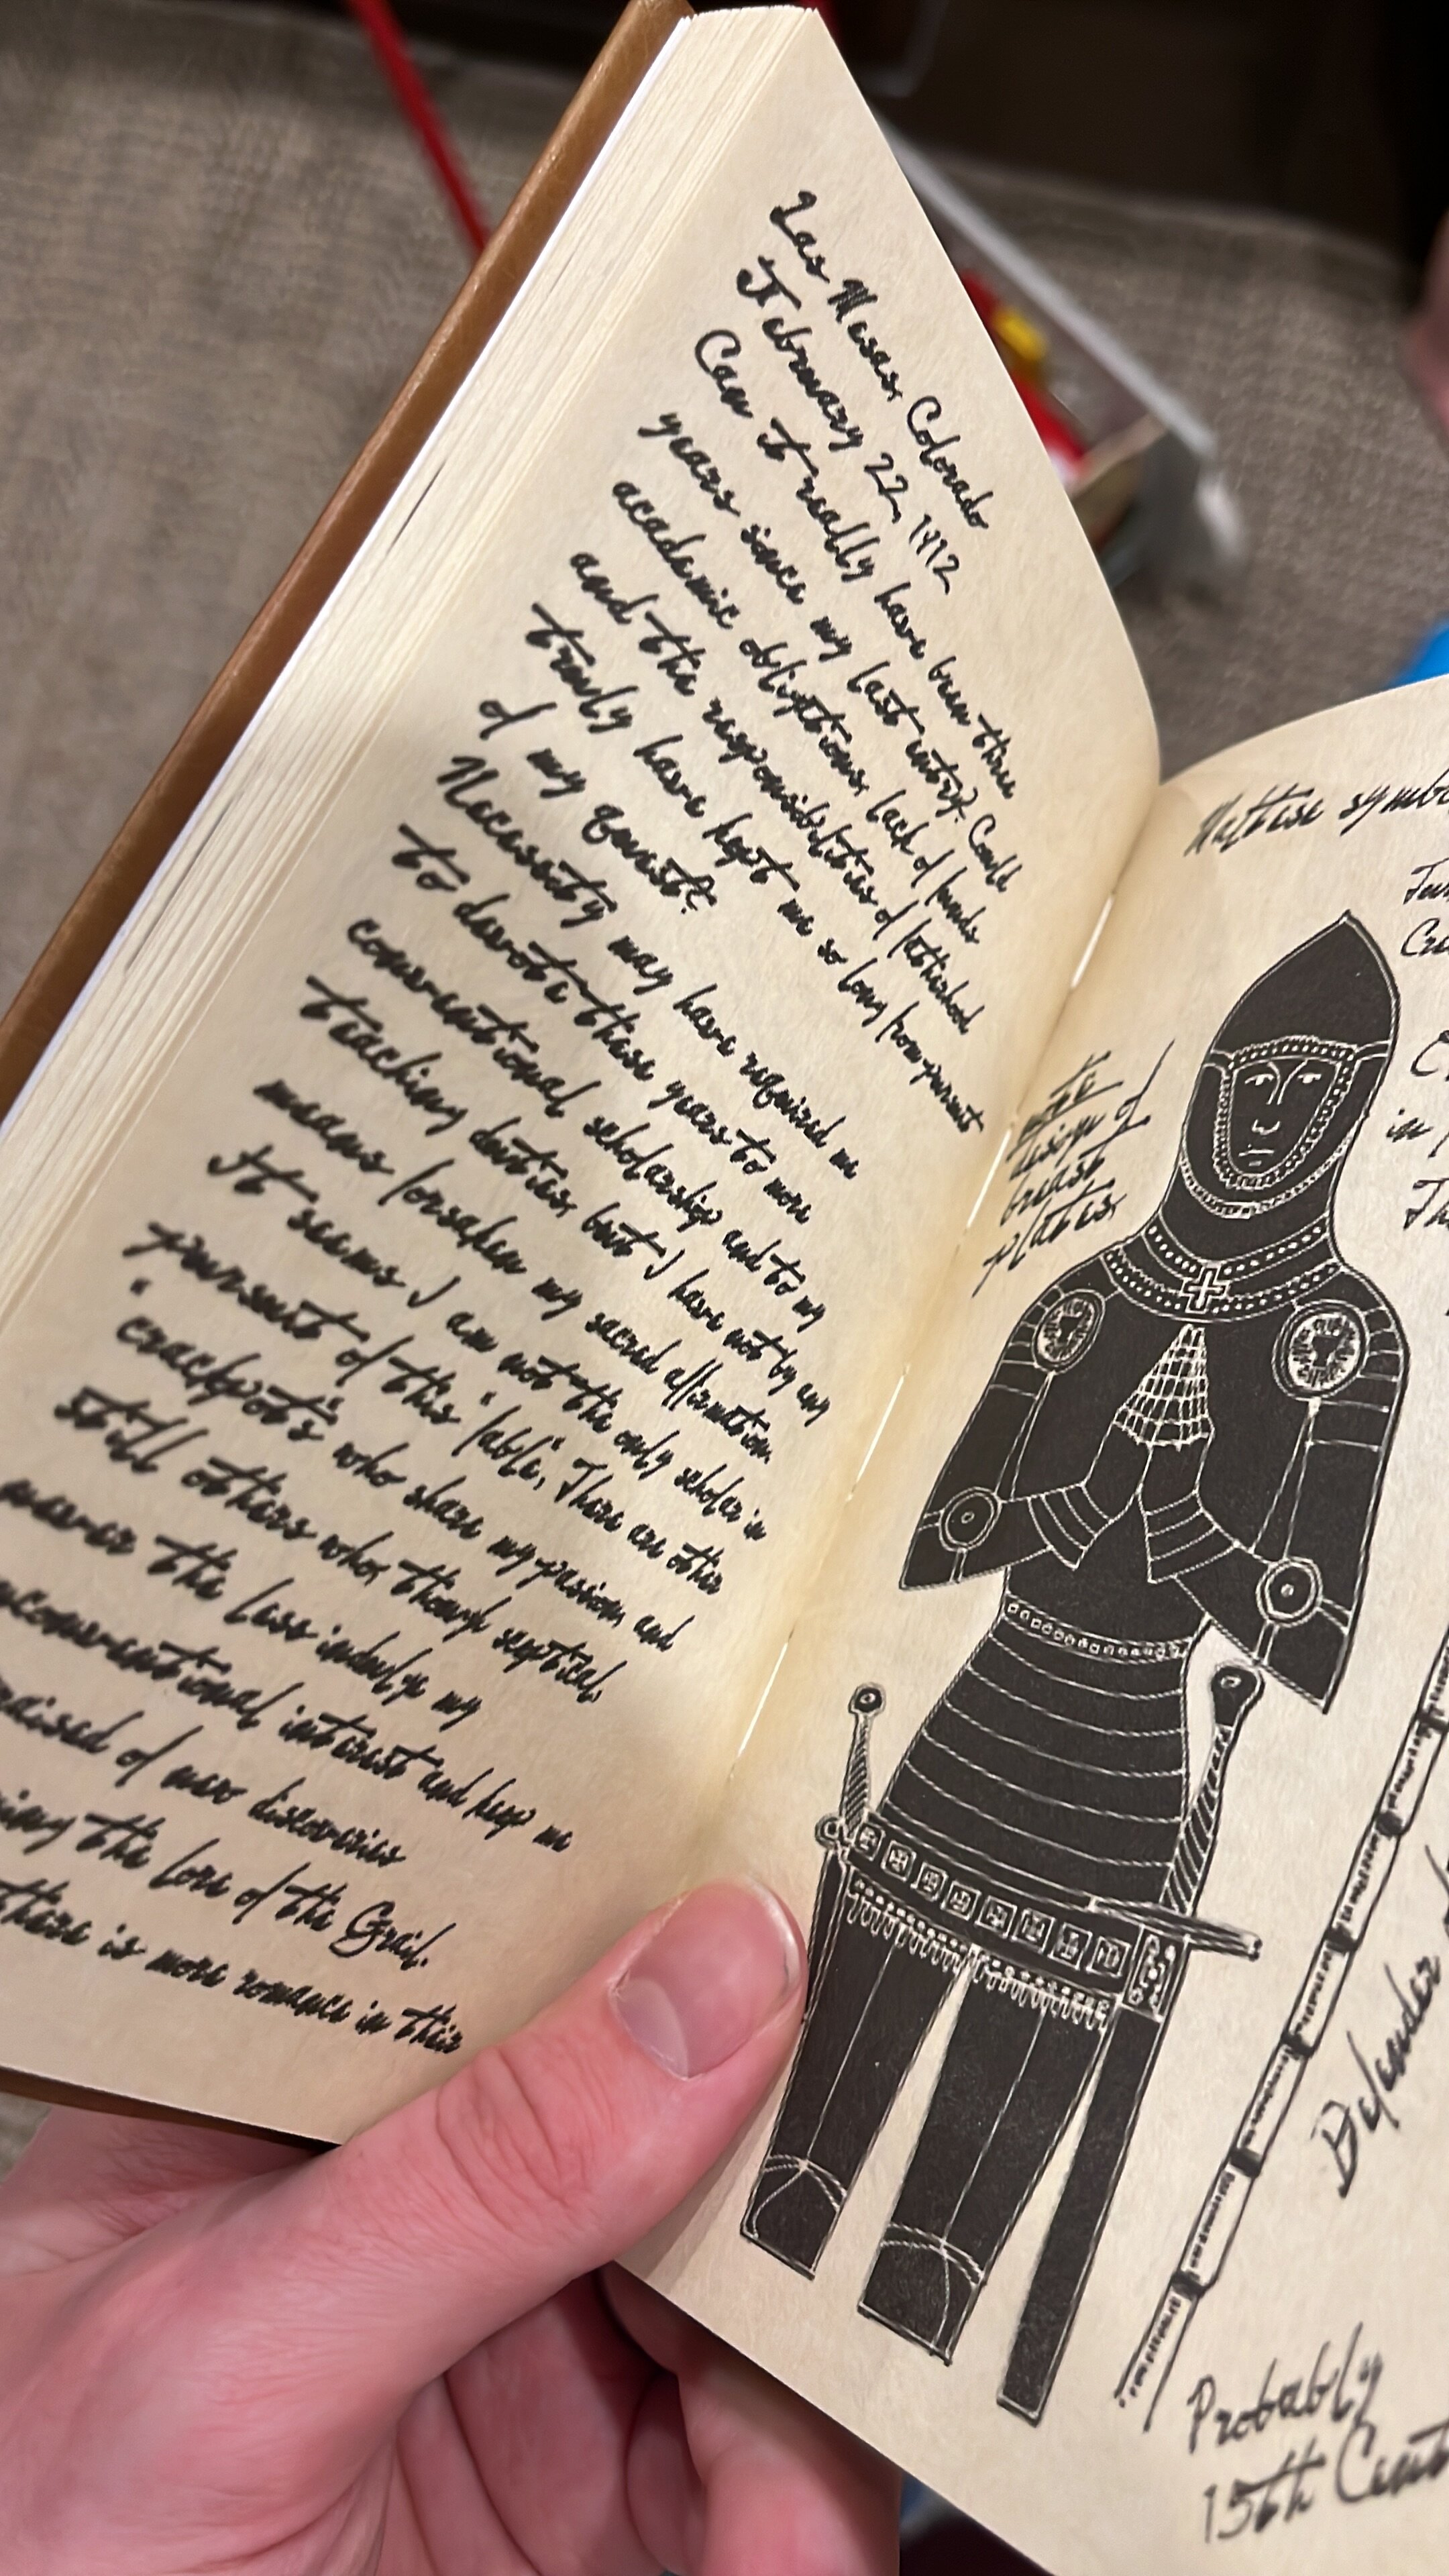 Las Mesas, Colorado
February 22, 1912
Can it really have been three
years since my last entry? Could
academic obligations, lack of funds
and the responsibilities of fatherhood
truly have kept me so long from pursuit
of my quest?
Necessity may have required me
to devote these years to more
conventional scholarship and to my
teaching duties, but I have not by any
means forsaken my sacred affirmation.
It seems I am not the only scholar in
pursuit of this "fable". There are other
"crackpots" who share my passion, and
still others who, though septical,
never the less indulge my
unconventional interest and keep me
praised of new discoveries
the lore of the Grail.
there is more romance in their
Maltese symbo
note
design of
breast
plates.
C
in
Th
Defender
Probably
15th Cent